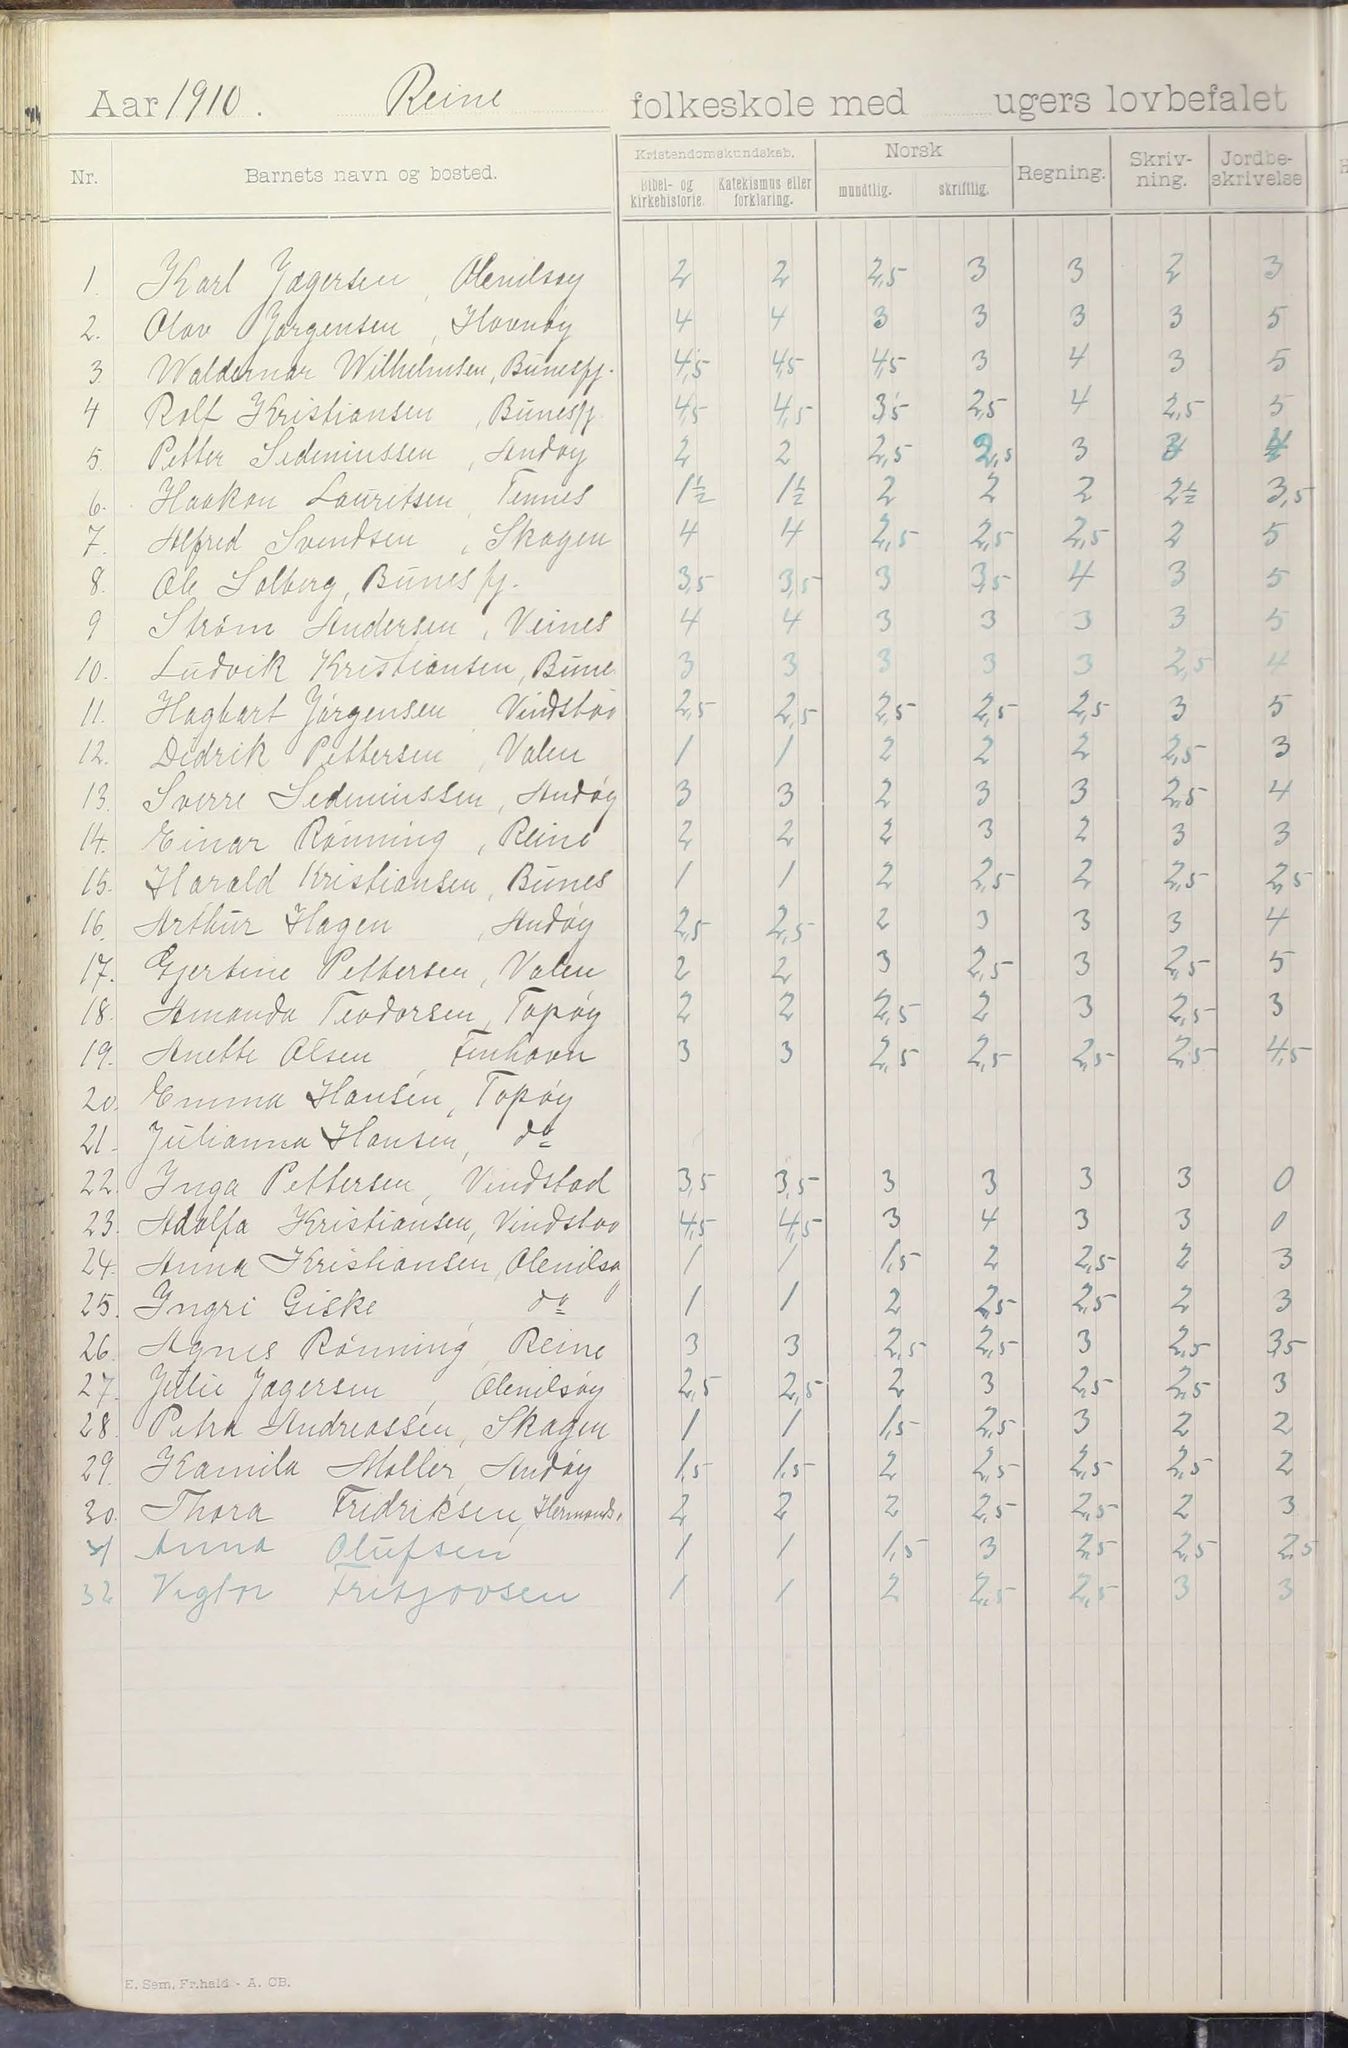 Aar 1910. Reine folkeskole med ugers lovbefalet
Nr. Barnets navn og bosted. Kristendomskundskab. Norsk Regning. Skriv-ning. Jordbe-skrivelse
Bibel- og kirkehistorie. Katekismus eller forklaring. mundtlig. skriftlig.
1. Karl Jægersen, Olenilsøy 2 2 2,5 3 3 2 3
2. Olav Jørgensen, Havnøy 4 4 3 3 3 3 5
3. Waldemar Wilhelmsen, Bunesfj. 4,5 4,5 4,5 3 4 3 5
4 Rolf Kristiansen, Bunesfj. 4,5 4,5 3,5 2,5 4 2,5 5
5. Petter Sedeniussen, Andøy 2 2 2,5 2,5 3 3 4
6. Haakon Lauritsen, Tennes 1½ 1½ 2 2 2 2½ 3,5
7. Alfred Svendsen, Skagen 4 4 2,5 2,5 2,5 2 5
8. Ole Solberg, Bunesfj. 3,5 3,5 3 3,5 4 3 5
9 Strøm Andersen, Veines 4 4 3 3 3 3 5
10. Ludvik Kristiansen, Bune 3 3 3 3 3 2,5 4
11. Hagbart Jørgensen Vindstad 2,5 2,5 2,5 2,5 2,5 3 5
12. Didrik Pettersen, Valen 1 1 2 2 2 2,5 3
13. Sverre Sedeniussen, Andøy 3 3 2 3 3 2,5 4
14. Einar Rønning, Reine 2 2 2 3 2 3 3
15. Harald Kristiansen, Bunes 1 1 2 2,5 2 2,5 2,5
16. Arthur Hagen, Andøy 2,5 2,5 2 3 3 3 4
17. Gjertine Pettersen, Valen 2 2 3 2,5 3 2,5 5
18. Amanda Teodorsen, Topøy 2 2 2,5 2 3 2,5 3
19. Anette Olsen, Fenhavn 3 3 2,5 2,5 2,5 2,5 4,5
20. Emma Hansen, Topøy
21. Julianna Hansen, do
22. Inga Pettersen, Vindstad 3,5 3,5 3 3 3 3 0
23. Adolfa Kristiansen, Vindstad 4,5 4,5 3 4 3 3 0
24. Anna Kristiansen, Olenilsøy 1 1 1,5 2 2,5 2 3
25. Ingri Giske do 1 1 2 2,5 2,5 2 3
26. Agnes Rønning, Reine 3 3 2,5 2,5 3 2,5 3,5
27. Jullie Jægersen, Olenilsøy 2,5 2,5 2 3 2,5 2,5 3
28. Petra Andreassen, Skagen 1 1 1,5 2,5 3 2 2
29. Kamila Møller, Andøy 1,5 1,5 2 2,5 2,5 2,5 2
30. Thora Fridriksen, Hermands. 2 2 2 2,5 2,5 2 3
31 Anna Olufsen 1 1 1,5 3 2,5 2,5 2,5
32 Vigtor Fritjovsen 1 1 2 2,5 2,5 3 3
E. Sem, Fr.hald - A. CB.